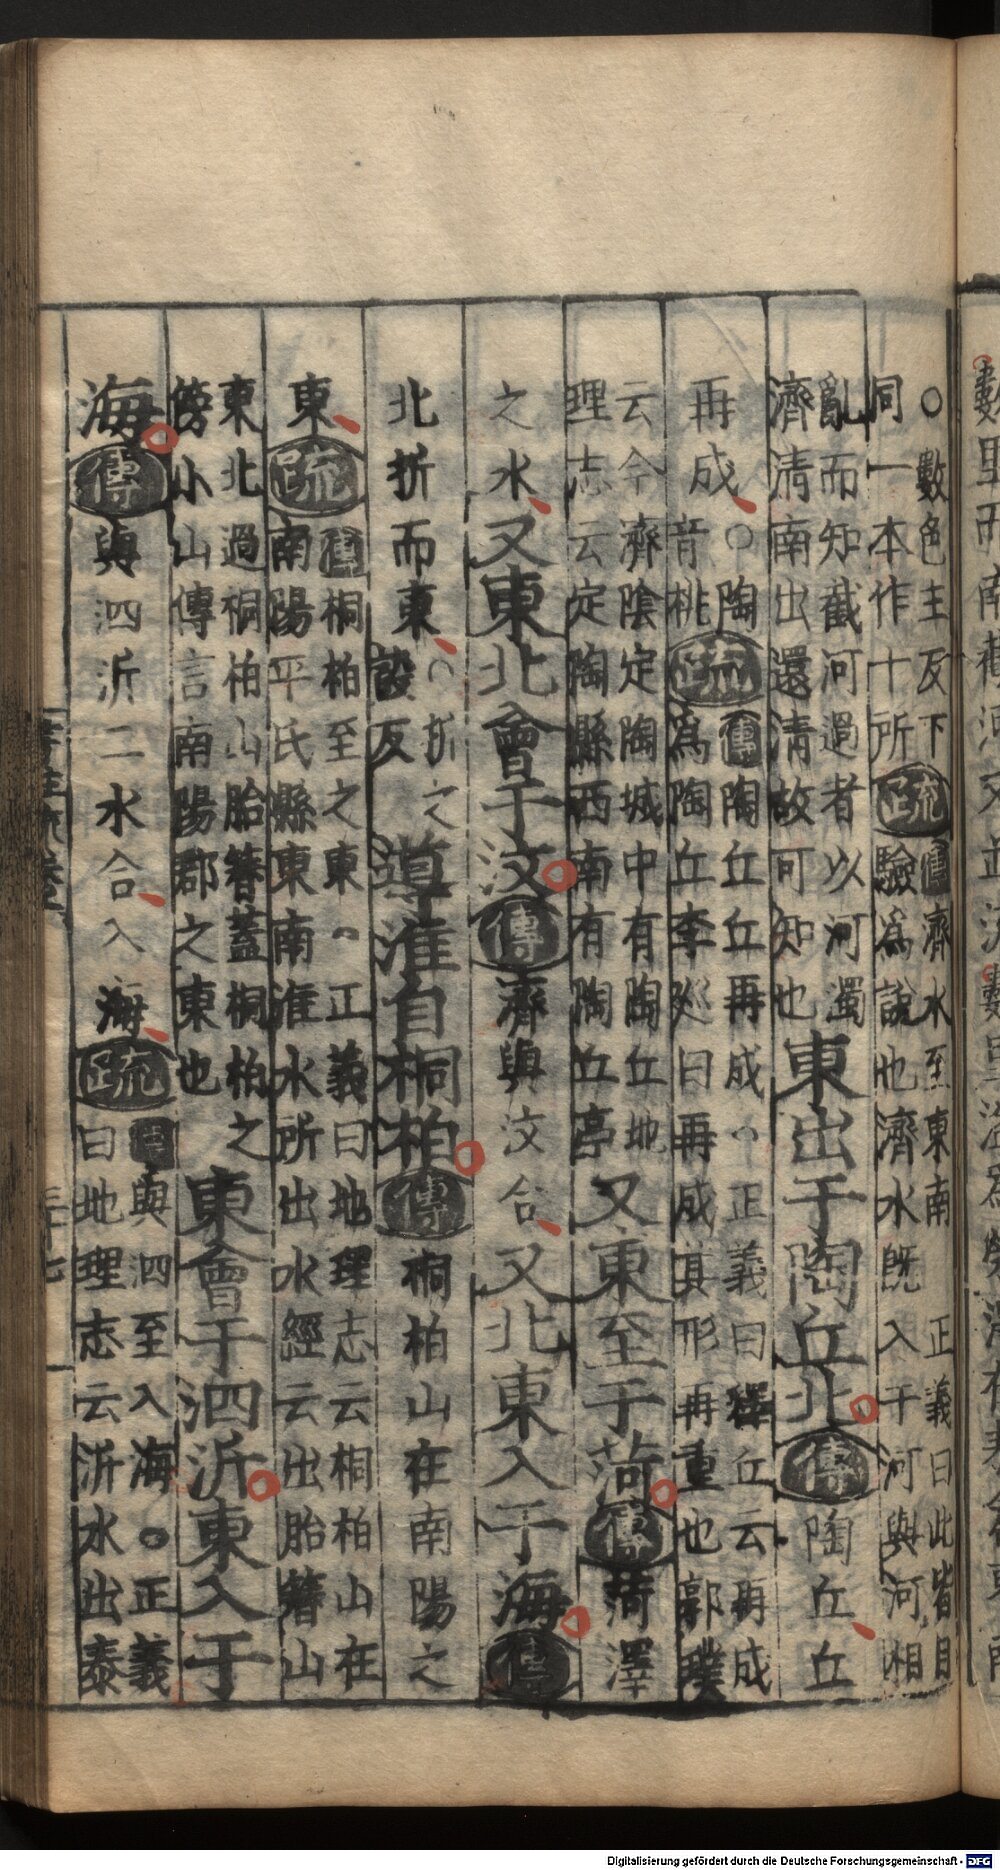 ○數色主反下同一本作十所疏傳濟水至東南正義曰此皆目驗為說也濟水既入于河與河相
亂而知截河過者以河濁濟清南出還清故可知也東出于陶丘北傳陶丘丘
再成○陶音桃疏傳陶丘丘再成正義曰釋丘云再成為陶丘李巡曰再成其形再重也郭璞
云今濟陰定陶城中有陶丘地理志云定陶縣西南有陶丘亭又東至于菏傳菏澤
之水又東北會于汶傳濟與汶合又北東入于海傳
北折而東○折之設反導淮自桐柏傳桐柏山在南陽之
東疏傳桐柏至之東正義曰地理志云桐柏山在南陽平氏縣東南淮水所出水經云出胎簪山
東北過桐柏山胎簪蓋桐柏之傍小山傳言南陽郡之東也東會于泗沂東入于
海傳與泗沂二水合入海疏傳與泗至入海○正義曰地理志云沂水出泰
Digitalisierung gefördert durch die Deutsche Forschungsgemeinschaft - DFG